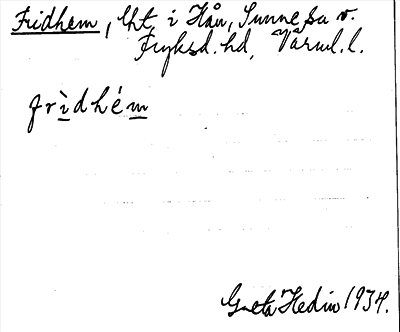 Fridhem, lht, i Hån, Sunne sn v.
Fryksd. hd, Värml. l.
frìdhém
Greta Hedin 1934.